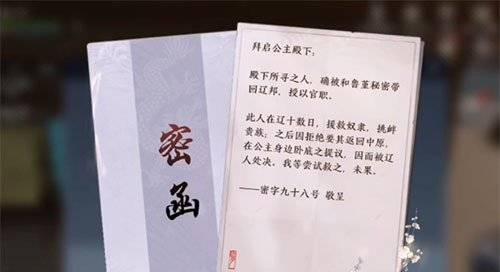 密函
拜启公主殿下:
殿下所寻之人,确被和鲁堇秘密带
回辽邦,授以官职。
此人在辽十数日,援救奴隶,挑衅
贵族;之后因拒绝要其返回中原,
在公主身边卧底之提议,因而被辽
人处决。我等尝试救之,未果。
——密字九十八号 敬呈